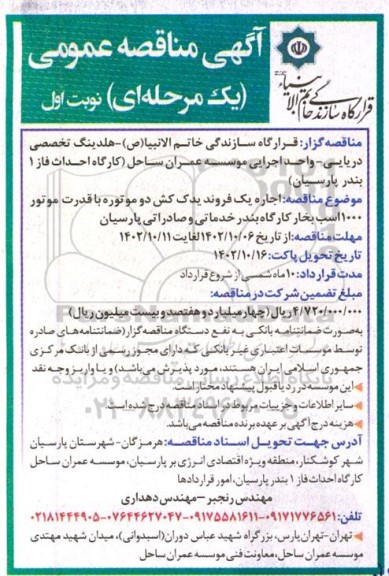 آگهی مناقصه عمومی
(یک مرحله‌ای) نوبت اول
قرارگاه سازندگی خاتم الانبیاء
مناقصه گزار: قرارگاه سازندگی خاتم الانبیا(ص) -هلدینگ تخصصی
دریایی- واحد اجرایی موسسه عمران ساحل (کارگاه احداث فاز ۱
بندر پارسیان)
موضوع مناقصه: اجاره یک فروند یدک کش دو موتوره با قدرت موتور
۱۰۰۰اسب بخار کارگاه بندر خدماتی و صادراتی پارسیان
مهلت مناقصه: از تاریخ ۱۴۰۲/۱۰/۰۶ لغایت ۱۴۰۲/۱۰/۱۱
تاریخ تحویل پاکت: ۱۴۰۲/۱۰/۱۶
مدت قرارداد: ۱۰ ماه شمسی از شروع قرارداد
مبلغ تضمین شرکت در مناقصه:
۴/۷۲۰/۰۰۰/۰۰۰ ریال (چهار میلیارد و هفتصد و بیست میلیون ریال)
به‌صورت ضمانتنامه بانکی به نفع دستگاه مناقصه گزار (ضمانتنامه‌های صادره
توسط موسسات اعتباری غیر بانکی که دارای مجوز رسمی از بانک مرکزی
جمهوری اسلامی ایران هستند، مورد پذیرش می‌باشد) و یا واریز وجه نقد
این موسسه در رد یا قبول پیشنهاد مختار است.
سایر اطلاعات و جزییات مربوط در اسناد مناقصه درج شده است.
هزینه درج آگهی بر عهده برنده مناقصه می‌باشد.
آدرس جهت تحویل اسناد مناقصه: هرمزگان- شهرستان پارسیان
شهر کوشکنار، منطقه ویژه اقتصادی انرژی بر پارسیان، موسسه عمران ساحل
کارگاه احداث فاز ۱ بندر پارسیان، امور قراردادها
مهندس رنجبر -مهندس دهداری
تلفن: ۰۹۱۷۱۷۷۶۵۶۱-۰۹۱۷۵۵۸۱۶۱۱-۰۷۶۴۴۶۲۷۰۴۷-۰۲۱۸۱۴۴۴۹۰۵
تهران- تهران پارس، بزرگراه شهید عباس دوران (اسبدوانی)، میدان شهید مهتدی
موسسه عمران ساحل، معاونت فنی موسسه عمران ساحل